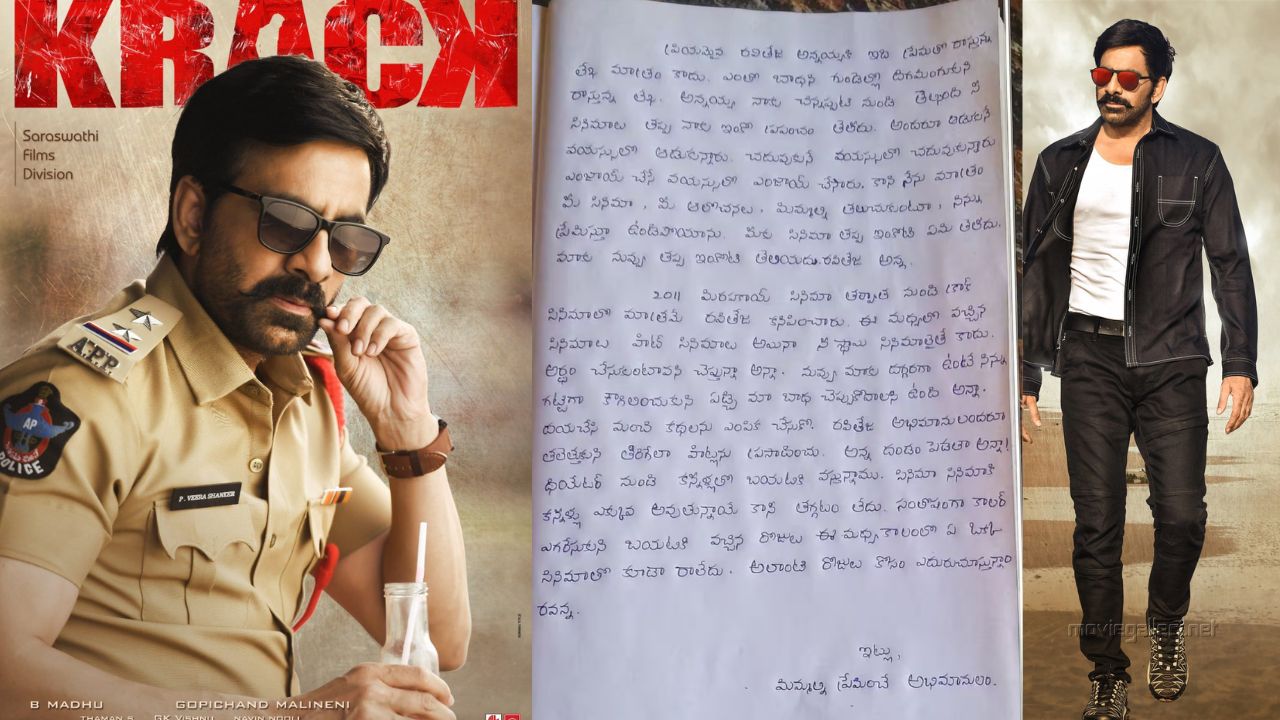 KRACK
Saraswathi
Films
Division
A.P.P
AP
POLICE
P. VEERA SHANKER
B MADHU GOPICHAND MALINENI
THAMAN S GK VISHNU NAVIN NOOLI
ప్రియమైన రవితేజ అన్నయ్యకి ఇది ప్రేమతో రాస్తున్న
లేఖ మాత్రం కాదు. ఎంతో బాధని గుండెల్లో దిగమింగుకుని
రాస్తున్న లేఖ. అన్నయ్య నాకు చిన్నప్పటి నుండి తెల్సింది నీ
సినిమాలు తప్ప నాకు ఇంకో ప్రపంచం తెలీదు. అందరూ ఆడుకునే
వయస్సులో ఆడుకున్నారు. చదువుకునే వయస్సులో చదువుకున్నారు
ఎంజాయ్ చేసే వయస్సులో ఎంజాయ్ చేసారు. కాని నేను మాత్రం
మీ సినిమా, మీ ఆలోచనలు, మిమ్మల్ని తలుచుకుంటూ, నిన్ను
ప్రేమిస్తూ ఉండిపోయాను. మీకు సినిమా తప్ప ఇంకోటి ఏమి తెలీదు.
మాకు నువ్వు తప్ప ఇంకోటి తెలియదు. రవితేజ అన్న.
2011 మిరపకాయ్ సినిమా తర్వాత నుండి క్రాక్
సినిమాలో మాత్రమే రవితేజ కనిపించారు. ఈ మధ్యలో వచ్చిన
సినిమాలు హిట్ సినిమాలు అయినా నీ స్థాయి సినిమాలైతే కాదు.
అర్థం చేసుకుంటావని చెప్తున్నా అన్నా. నువ్వు మాకు దగ్గరగా ఉంటే నిన్ను
గట్టిగా కౌగిలించుకుని ఏడ్చి మా బాధ చెప్పుకోవాలని ఉంది అన్నా.
దయచేసి మంచి కథలను ఎంపిక చేసుకో. రవితేజ అభిమానులందరూ
తలెత్తుకుని తిరిగేలా హిట్లను ప్రసాదించు. అన్న దండం పెడతా అన్నా!
థియేటర్ నుండి కన్నీళ్ళలో బయటకి వస్తున్నాము. సినిమా సినిమాకి
కన్నీళ్ళు ఎక్కువ అవుతున్నాయే కాని తగ్గటం లేదు. సంతోషంగా కాలర్
ఎగరేసుకుని బయటకి వచ్చిన రోజులు ఈ మధ్య కాలంలో ఏ ఒక్క
సినిమాతో కూడా రాలేదు. అలాంటి రోజులు కోసం ఎదురుచూస్తున్నాం
రవన్న.
ఇట్లు,
మిమ్మల్ని ప్రేమించే అభిమానులం.
moviegalleri.net